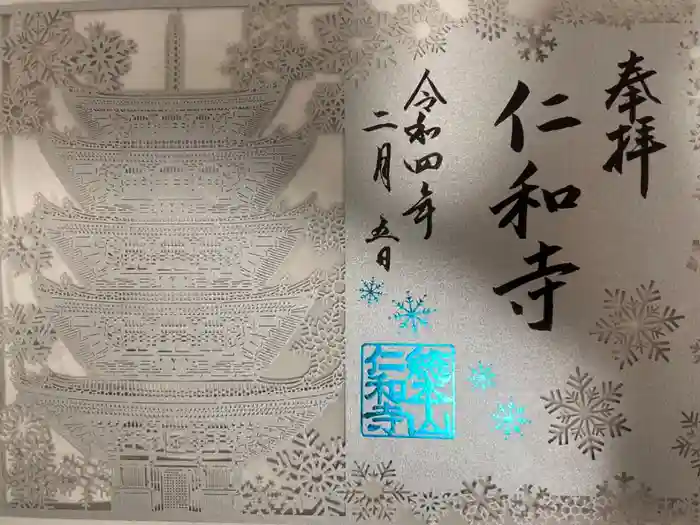 奉拝
仁和寺
令和四年
二月五日
総本山
仁和寺